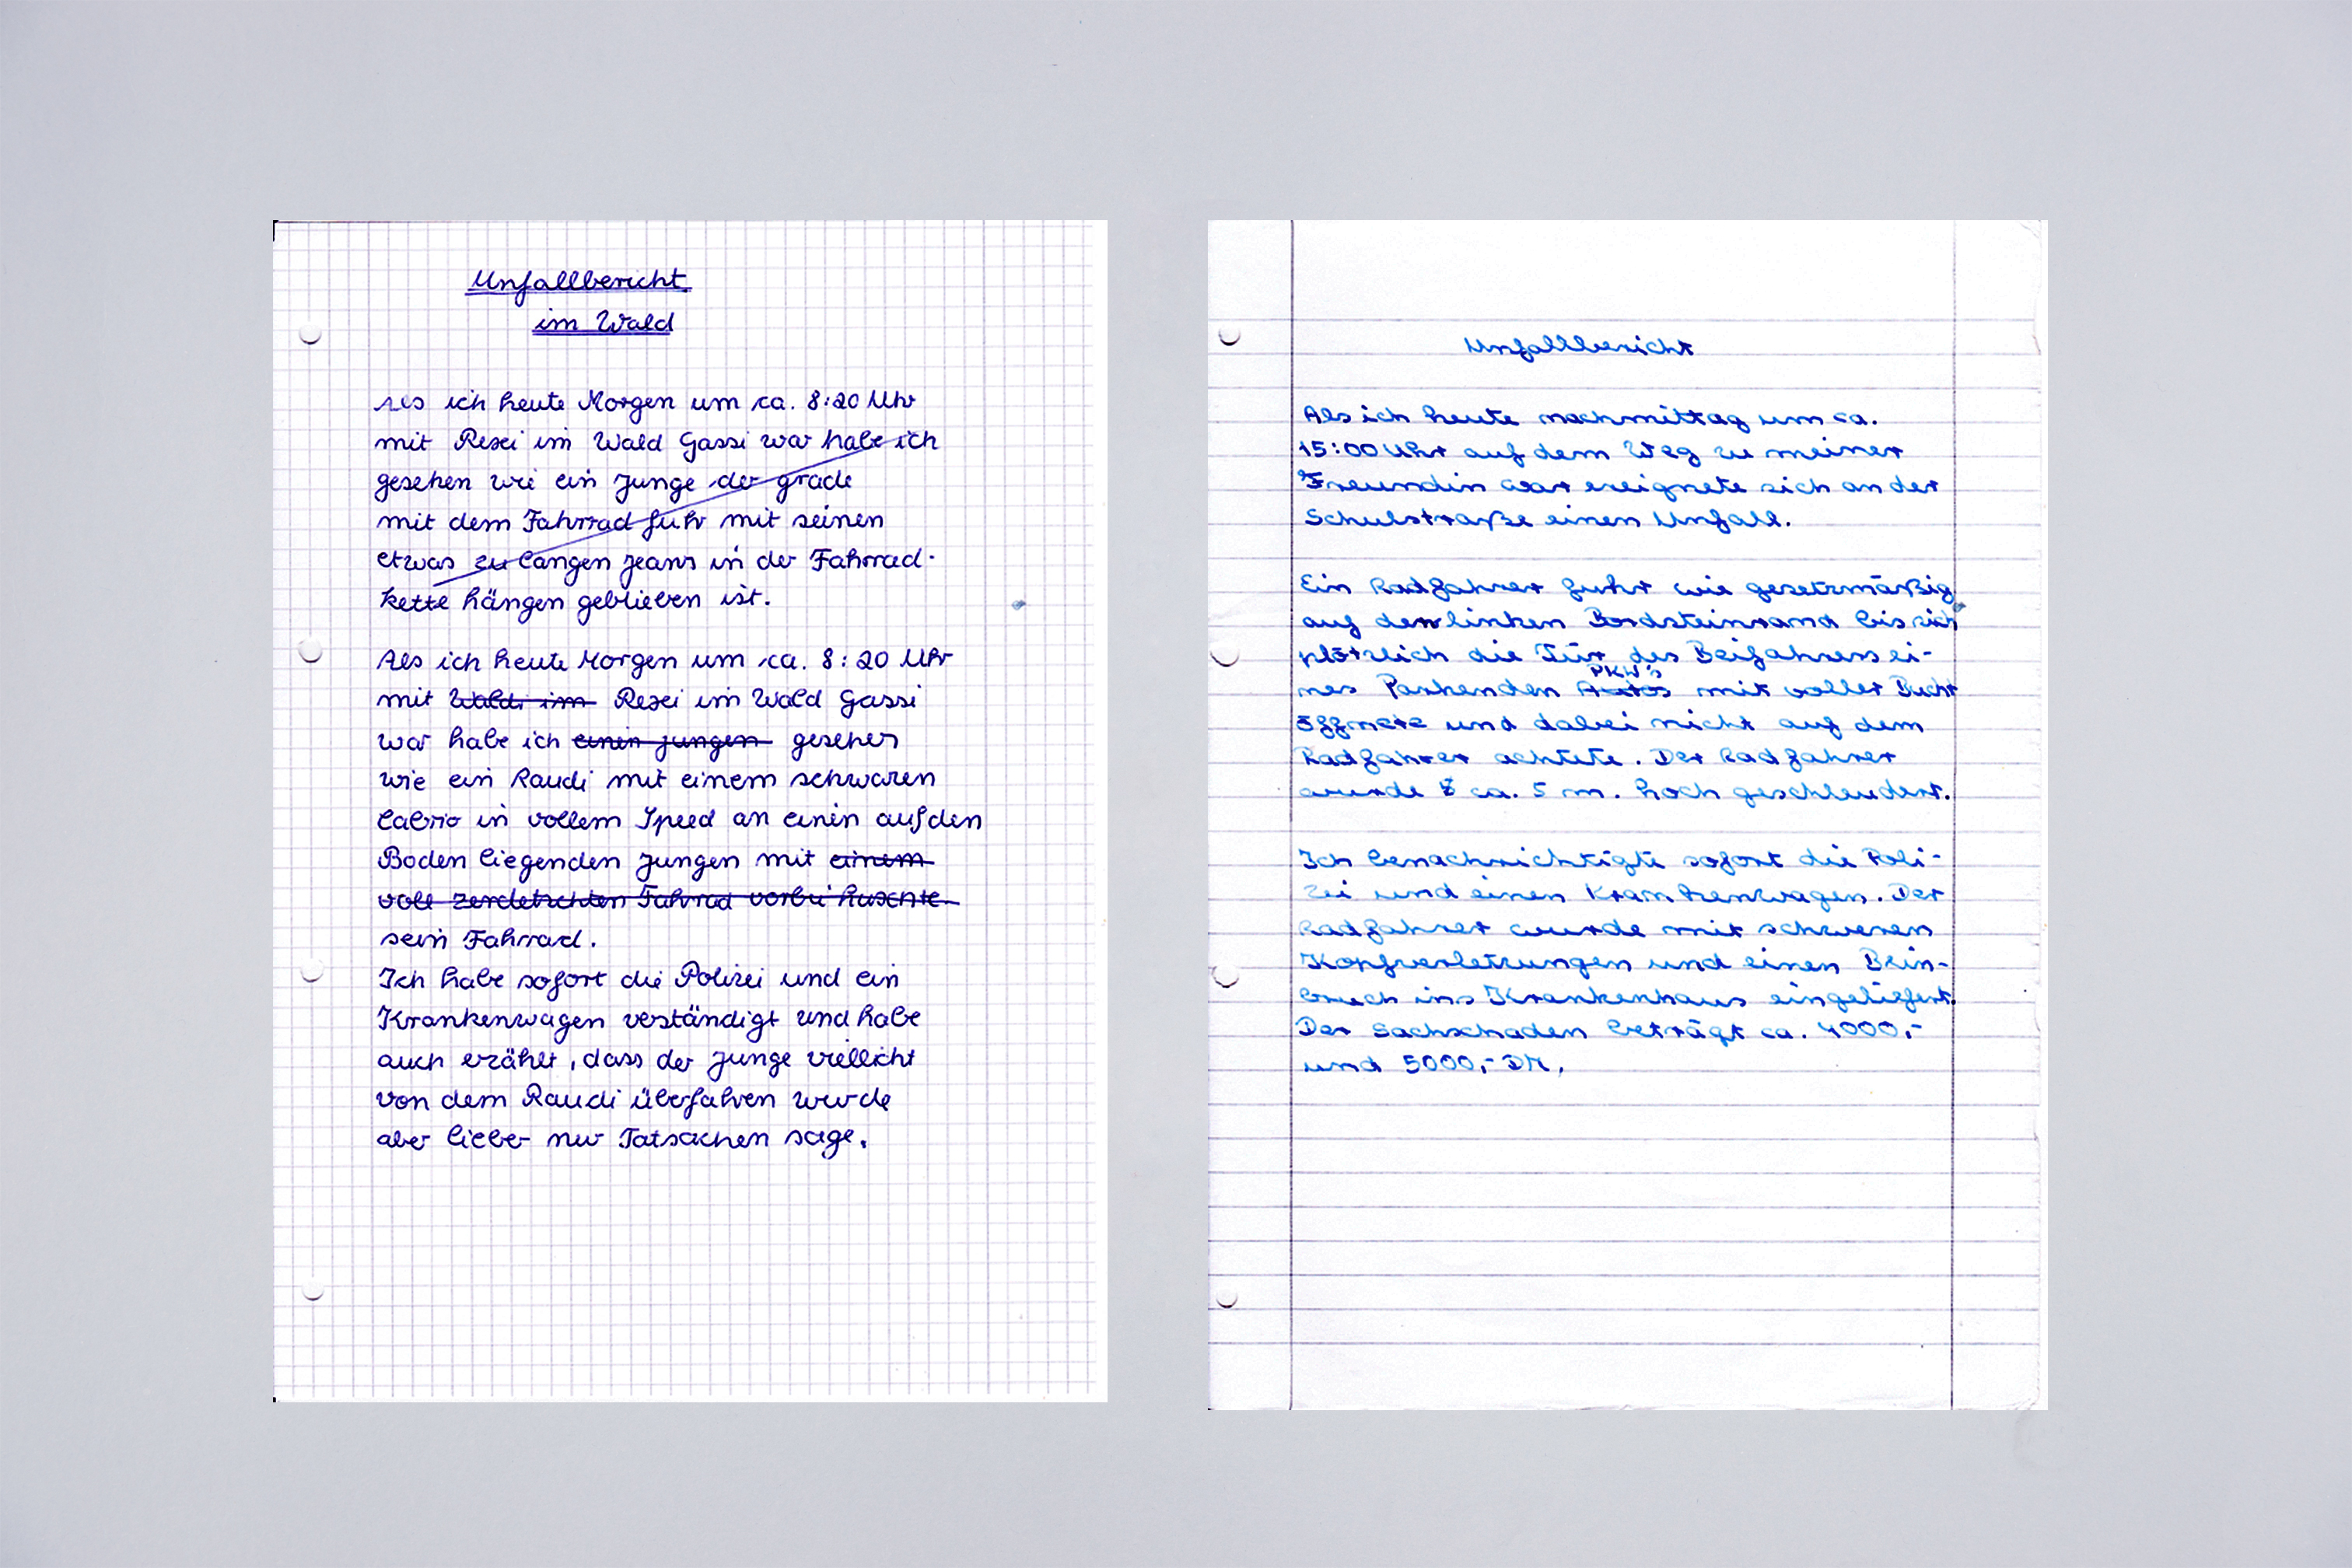 Unfallbericht
im Wald
Als ich heute Morgen um ca. 8:20 Uhr
mit Rexi im Wald Gassi war habe ich
gesehen wie ein Junge der grade
mit dem Fahrrad fuhr mit seinen
etwas zu langen Jeans in der Fahrrad-
kette hängen geblieben ist.
Als ich heute Morgen um ca. 8:20 Uhr
mit Waldi im Rexi im Wald Gassi
war habe ich einen jungen gesehen
wie ein Raudi mit einem schwaren
Cabrio in vollem Speed an einen auf den
Boden liegenden Jungen mit einem
voll zerdetschten Fahrrad vorbei huschte.
sein Fahrrad.
Ich habe sofort die Polizei und ein
Krankenwagen verständigt und habe
auch erzählt, dass der Junge viellicht
von dem Raudi überfahren wurde
aber lieber nur Tatsachen sage.
Unfallbericht
Als ich heute nachmittag um ca.
15:00 Uhr auf dem Weg zu meiner
Freundin war ereignete sich an der
Schulstraße einen Unfall.
Ein Radfahrer fuhr wie gesetzmäßig
auf den linken Bordsteinrand bis sich
plötzlich die Tür des Beifahrers ei-
nes Parkenden Autos PKW's mit voller Bucht
öffnete und dabei nicht auf dem
Radfahrer achtete. Der Radfahrer
wurde ca. 5 m. hoch geschleudert.
Ich benachrichtigte sofort die Poli-
zei und einen Krankenwagen. Der
Radfahrer wurde mit schweren
Kopfverletzungen und einen Bein-
bruch ins Krankenhaus eingeliefert.
Der Sachschaden beträgt ca. 4000,-
und 5000,- DM.